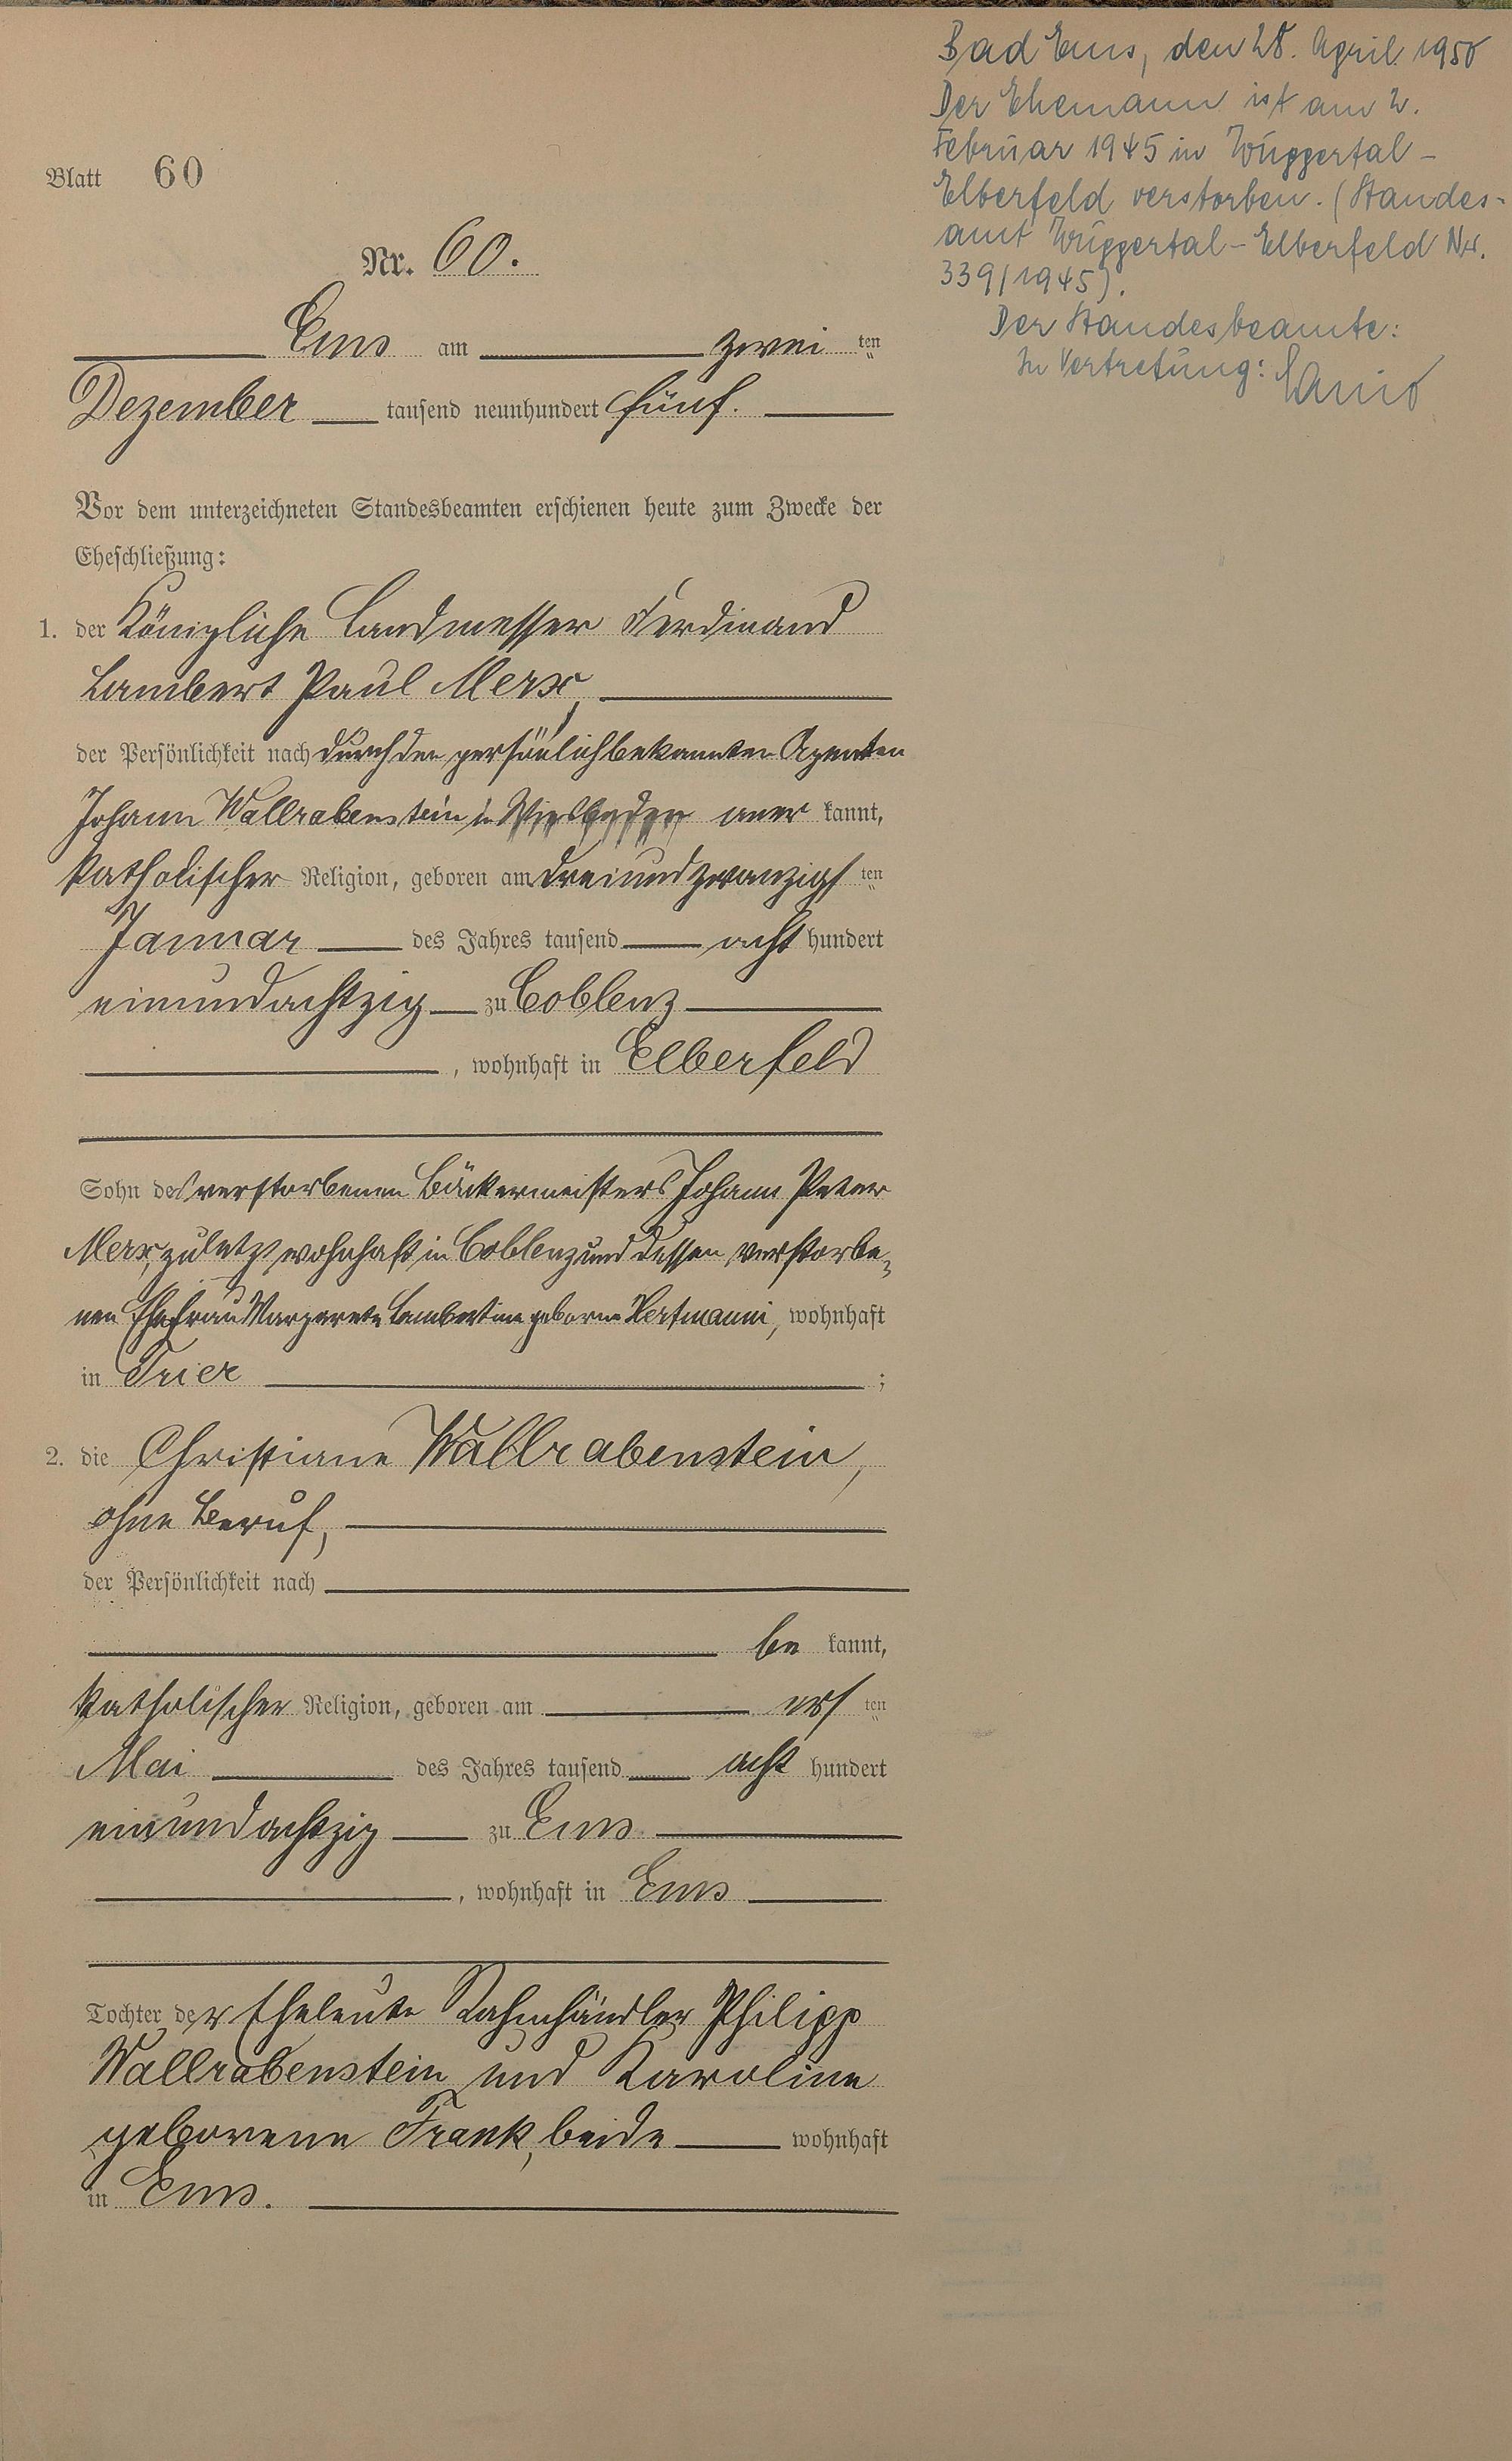 Blatt 60
Nr. 60.
Ems am zwei ten
Dezember tausend neunhundert fünf.
Vor dem unterzeichneten Standesbeamten erschienen heute zum Zwecke der
Eheschließung:
1. der Königliche Landmesser Ferdinand
Lambert Paul Merx,
der Persönlichkeit nach durch den persönlich bekannten Agenten
Johann Wallrabenstein in Wiesbaden aner kannt,
katholischer Religion, geboren am dreiundzwanzigs ten
Januar des Jahres tausend acht hundert
einundachtzig zu Coblenz
, wohnhaft in Elberfeld
Sohn des verstorbenen Bäckermeisters Johann Peter
Merx, zuletzt wohnhaft in Coblenz und dessen verstorbe-
nen Ehefrau Margarete Lambertine geborne Hertmanni, wohnhaft
in Trier ;
2. die Christiane Wallrabenstein,
ohne Beruf,
der Persönlichkeit nach
be kannt,
katholischer Religion, geboren am ers ten
Mai des Jahres tausend acht hundert
einundachtzig zu Ems
, wohnhaft in Ems
Tochter der Eheleute Rahmhändler Philipp
Wallrabenstein und Karoline
geborenen Frank, beide wohnhaft
in Ems.
Bad Ems, den 28. April 1950
Der Ehemann ist am 2.
Februar 1945 in Wuppertal-
Elberfeld verstorben. (Standes-
amt Wuppertal-Elberfeld Nr.
339/1945).
Der Standesbeamte:
In Vertretung: